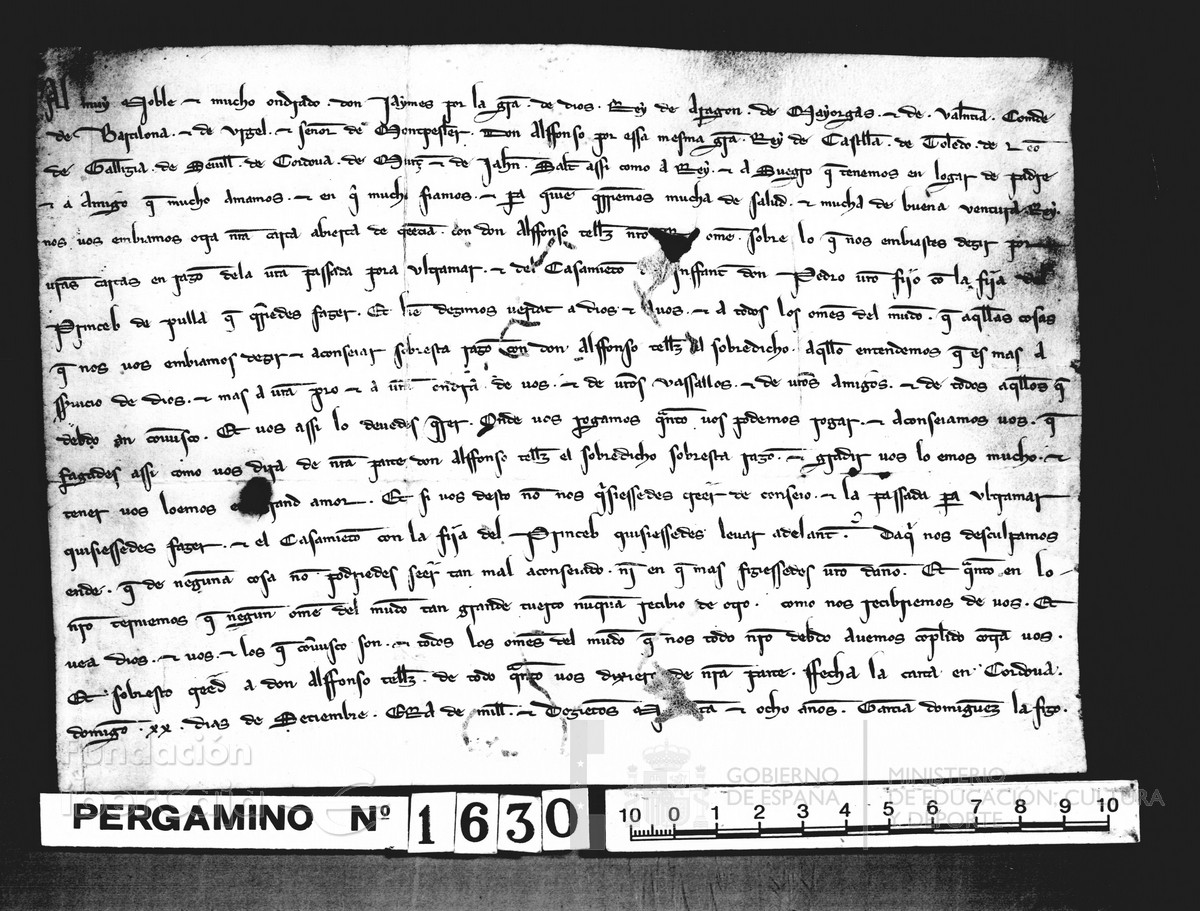 Al muy Noble ⁊ mucho ondrado don Jaymes por la gr̃a de dios Rey de Aragon de Mayorgas ⁊ de Valñtia Comde
de Barcilona ⁊ de Vrgel ⁊ señor de Montpesler Don Alffonso por essa mesma gr̃a Rey de Castiella de Toledo de Leo
de Gallizia de Seuill de Cordoua de Murç ⁊ de Jahn Salt assi como a Rey ⁊ a Suegro q̃ tenemos en logar de padre
⁊ a Amigo q̃ mucho amamos ⁊ en q̃ mucho fiamos ⁊ pa quie q̃rriemos mucha de salud ⁊ mucha de buena ventura Rey
nos vos embiamos otra nr̃a carta abierta de creẽcia con don Alffonso tellz nr̃o ome sobre lo q̃ nos embiastes dezir por
ur̃as cartas en razo dela ur̃a passada pora vltramar ⁊ del Casamieto inffant don Pedro ur̃o fijo co la fija del
Princeb de pulla q̃ q̃riedes fazer Et bie dezimos verdat a dios ⁊ a uos ⁊ a todos los omes del mudo q̃ aq̃llas cosas
q̃ nos vos embiamos dezir ⁊ aconseiar sobresta razo con don Alffonso tellz el sobredicho aq̃llo entendemos q̃ es mas a
seruicio de dios ⁊ mas a ur̃a pro ⁊ a ur̃a ondra de vos ⁊ de ur̃os vassallos ⁊ de ur̃os amigos ⁊ de todos aq̃llos q̃
debdo an conuusco Et vos assi lo deuedes q̃rer Onde vos rogamos q̃nto vos podemos rogar ⁊ aconseiamos vos q̃
fagades assi como vos dira de nr̃a parte don Alffonso tellz el sobredicho sobresta razo ⁊ gradir vos lo emos mucho ⁊
tener vos loemos en grand amor Et si vos desto no nos q̃siessedes creer de conseio ⁊ la passada pa vltramar
quisiessedes fazer ⁊ el Casamieto con la fija del Princeb quisiessedes leuar adelant Daq̃ nos desculpamos
ende q̃ de neguna cosa no podriedes seer tan mal aconseiado ni en q̃ mas fiziessedes ur̃o dano Et q̃nto en lo
nr̃o terniemos q̃ negun ome del mudo tan grande tuerto nuqua recibio de otro como nos recibriemos de vos Et
vea dios ⁊ vos ⁊ los q̃ conuusco son ⁊ todos los omes del mudo q̃ nos todo nr̃o debdo auemos coplido cotra vos
Et sobresto creed a don Alffonso tellz de todo q̃nto vos dixiere de nr̃a parte ffecha la carta en Cordoua
domigo xx dias de Deciembre ERA de mill ⁊ Trezietos ⁊ ocho anos Garcia dominguez la fizo
Fundación
GOBIERNO DE ESPAÑA
MINISTERIO DE EDUCACIÓN, CULTURA Y DEPORTE
PERGAMINO Nº 1630
10 0 1 2 3 4 5 6 7 8 9 10